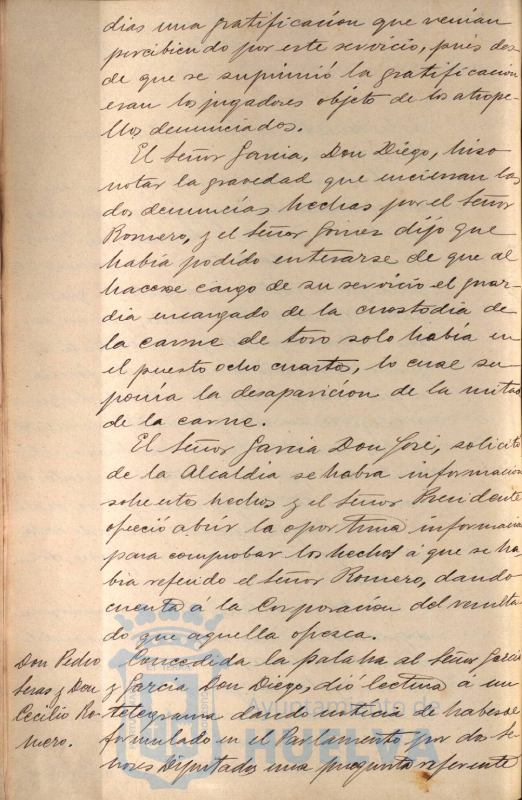 dias una gratificacion que venian
percibiendo por este servicio, pués des
de que se suprimió la gratificacion
eran los jugadores objeto de los atrope-
llos denunciados.
El Señor Garcia, Don Diego, hiso
notar la gravedad que encierran las
dos denuncias hechas por el Señor
Romero, y el Señor Gomez dijo que
habia podido enterarse de que al
hacerse cargo de su servicio el guar-
dia encargado de la custodia de
la carne de toro solo habia en
el puesto ocho cuartos, lo cual su
ponia la desaparicion de la mitad
de la carne.
El Señor Garcia Don José, solicitó
de la Alcaldia se habra informacion
sobre estos hechos y el Señor Presidente
ofreció abrir la oportuna informacion
para comprobar los hechos á que se ha-
bia referido el Señor Romero, dando
cuenta á la Corporacion del resulta-
do que aquella ofresca.
Don Pedro
Seras y Don
Cecilio Ro-
mero.
Concedida la palabra al Señor Garcia
y Garcia Don Diego, dió lectura á un
telegrama dando noticia de haberse
formulado en el Parlamento por dos Se-
ñores Diputados una pregunta referente
Ayuntamiento de
HUELVA